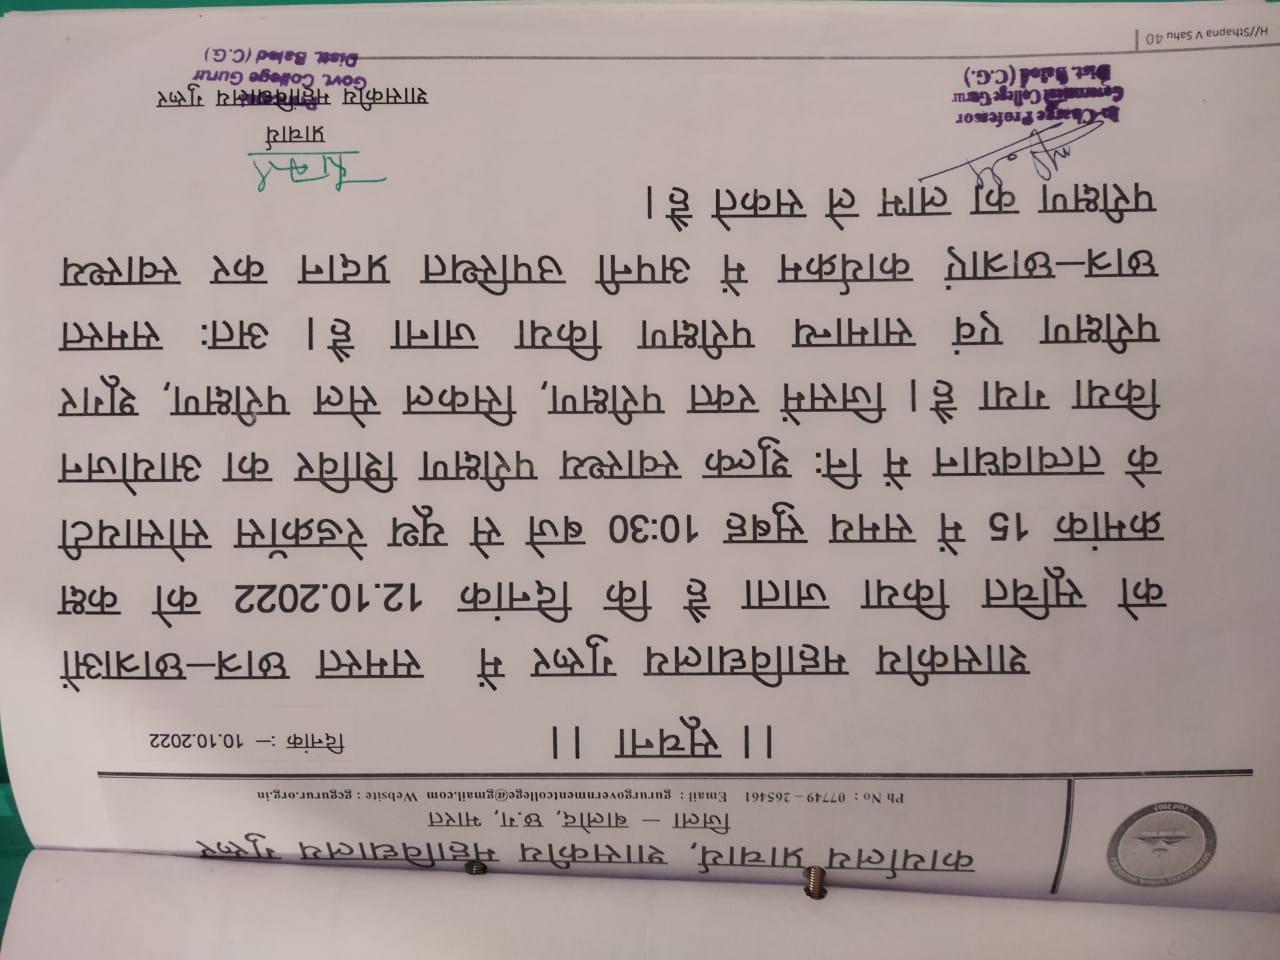 कार्यालय प्राचार्य, शासकीय महाविद्यालय गुरूर
जिला – बालोद, छ.ग, भारत
Ph No : 07749-265461 Email : gururgovernmentcollege@gmail.com Website : gcgurur.org.in
।। सूचना ।।
दिनांक :– 10.10.2022
शासकीय महाविद्यालय गुरूर में समस्त छात्र–छात्राओं
को सूचित किया जाता है कि दिनांक 12.10.2022 को कक्ष
क्रमांक 15 में समय सुबह 10:30 बजे से यूथ रेडक्रॉस सोसायटी
के तत्वावधान में निः शुल्क स्वास्थ्य परीक्षण शिविर का आयोजन
किया गया है। जिसमें रक्त परीक्षण, सिकल सेल परीक्षण, शूगर
परीक्षण एवं सामान्य परीक्षण किया जाना है। अतः समस्त
छात्र–छात्राएं कार्यक्रम में अपनी उपस्थित प्रदान कर स्वास्थ्य
परीक्षण का लाभ ले सकते है।
In-Charge Professor
Government College Gurur
Dist. Balod (C.G.)
प्राचार्य
शासकीय महाविद्यालय गुरूर
Govt. College Gurur
Distt. Balod (C.G)
H//Sthapna V Sahu 40